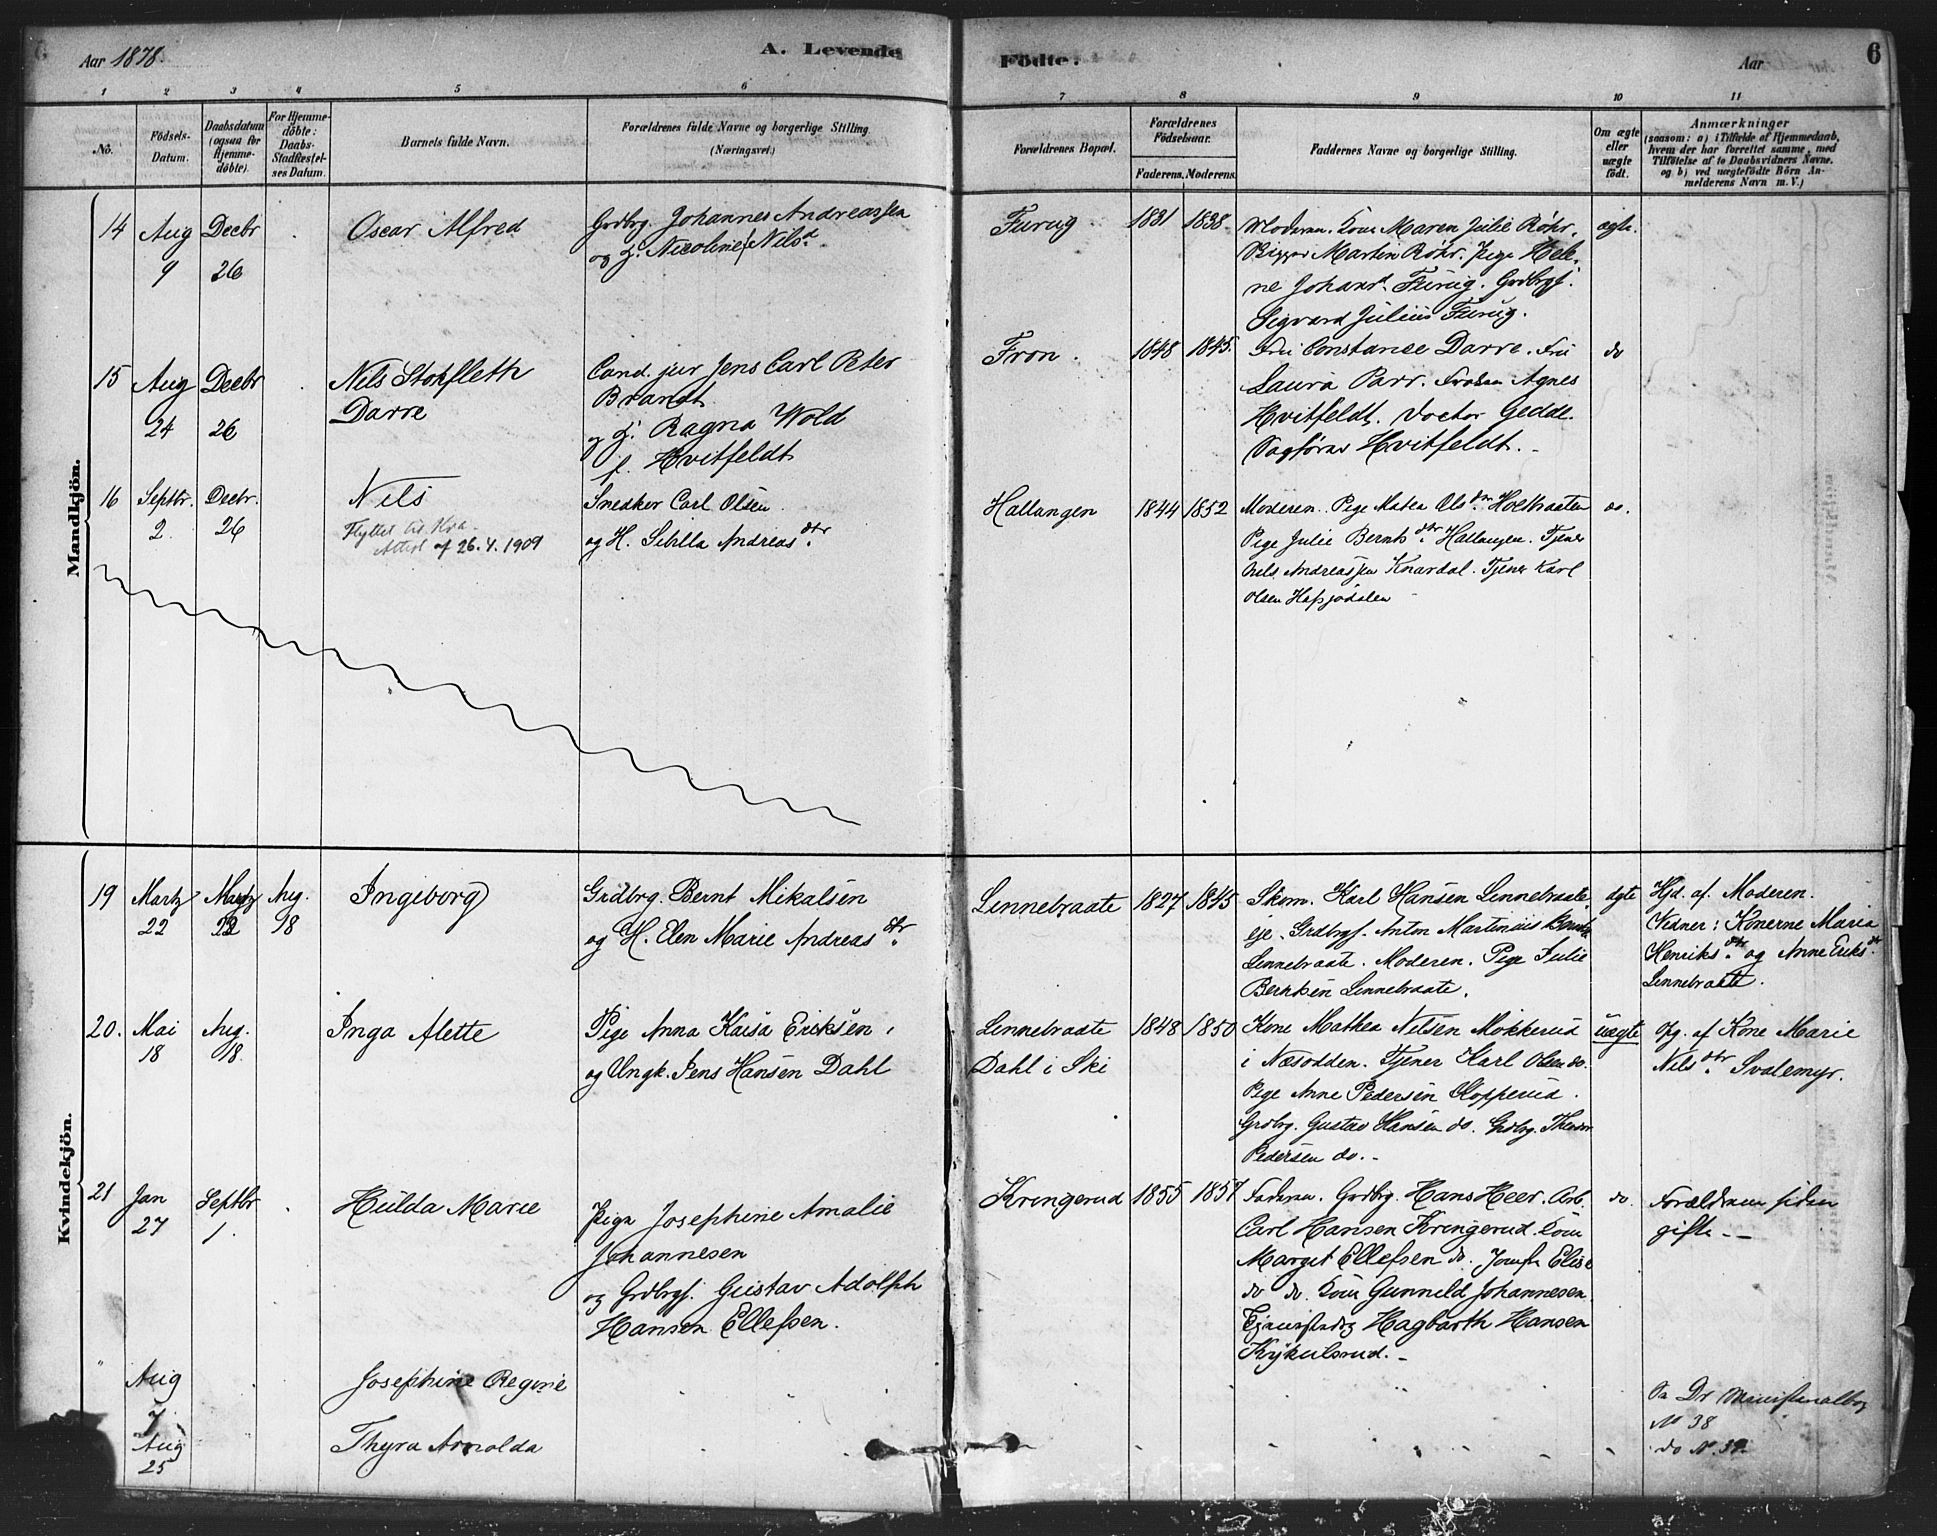 Aar 1878.
A. Levende
Födte.
Aar
6
1
2
3
4
5
6
7
8
9
10
11
No.
Födsels-
Datum.
Daabsdatum
(ogsaa for
Hjemme-
døbte).
For Hjemme-
døbte:
Daabs-
Stadfæstel-
ses Datum.
Barnets fulde Navn.
Forældrenes fulde Navne og borgerlige Stilling.
(Næringsvei.)
Forældrenes Bopæl.
Forældrenes
Födselsaar.
Faderens. Moderens.
Faddernes Navne og borgerlige Stilling.
Om ægte
eller
uægte
født.
Anmærkninger
(saasom: a) i Tilfælde af Hjemmedaab,
hvem der har forrettet samme, med
Tilføielse af to Daabsvidners Navne.
og b) ved uægtefödte Börn An-
melderens Navn m. V.)
Mandkjön.
14
Aug
9
Decbr
26
Oscar Alfred
Grdbrg. Johannes Andreassen
og H. Nicoline Nilsd.
Furug
1831
1838
Moderen. Kone Maren Julie Röhr.
Martin Röhr. Pige Hele-
ne Johansd. Furug. Grdbrgs.
Sigvard Julius Furug.
ægte.
15
Aug
24
Decbr
26
Nils Stokfleth
Darre
Cand. jur Jens Carl Peter
Brandt
og H. Ragna Wold
f. Hvitfeldt
Fron.
1848
1845.
Fru Constance Darre. Fru
Laura Parr. Frøken Agnes
Hvitfeldt. Doctor Gedde.
Sagförer Hvitfeldt.
do
16
Septbr.
2.
Decbr.
26
Nils
Flyttet til Kra.
Attest af 26.4.1909
Snedker Carl Olsen
og H. Sibilla Andreas dtr.
Hallangen
1844
1852
Moderen. Pige Matea Ols dtr. Holtbraaten
Pige Julie Bernts dtr. Hallangen. Tjener
Nils Andreassen Knardal. Tjener Karl
Olsen Hassjødalen
do.
Kvindekjön.
19
Martz
22
Aug.
18
Ingeborg
Grdbrg. Bernt Mikalsen
og H. Elen Marie Andreas dtr.
Linnebraate
1827
1845
Skom. Karl Hansen Linnebraate
eje. Grdbrgs. Anton Martinius Berntsen
Linnebraate. Moderen. Pige Julie
Berntsen Linnebraate.
ægte
Hjd. af Moderen.
Vidner: Konerne Maria
Henriks dtr. og Anne Eriks dtr.
Linnebraate.
20.
Mai
18
Aug.
18.
Inga Alette
Pige Anna Kaisa Eriksen,
og Ungk. Jens Hansen Dahl
Linnebraate
Dahl i Ski
1848
1850
Kone Mathea Nilsen Mokkerud
i Næsodden. Tjener Karl Olsen do.
Pige Anne Pedersen Kopperud.
Grdbrg. Gustav Hansen do. Grdbrg. Theodor
Pedersen do.
uægte
Opg. af Kone Marie
Nils dtr. Svalemyr.
21
Jan
27
Septbr
1.
Hulda Marie
Pige Josephine Amalie
Johannesen
og Grdbrgs. Gustav Adolph
Hansen Ellefsen.
Kringerud
1855
1857
Faderen. Grdbrg. Hans Heer. Arb.
Carl Hansen Kringerud. Kone
Marget Ellefsen do. Jomfr Elise
do do. Kone Gunnild Johannesen.
Hagbarth Hansen
Krykulsrud.
do.
Forældrene siden
gifte
"
Aug
7
Josephine Regine
Se Dr Ministerialbog
No 38
Aug
25
Thyra Arnolda
do No. 39.